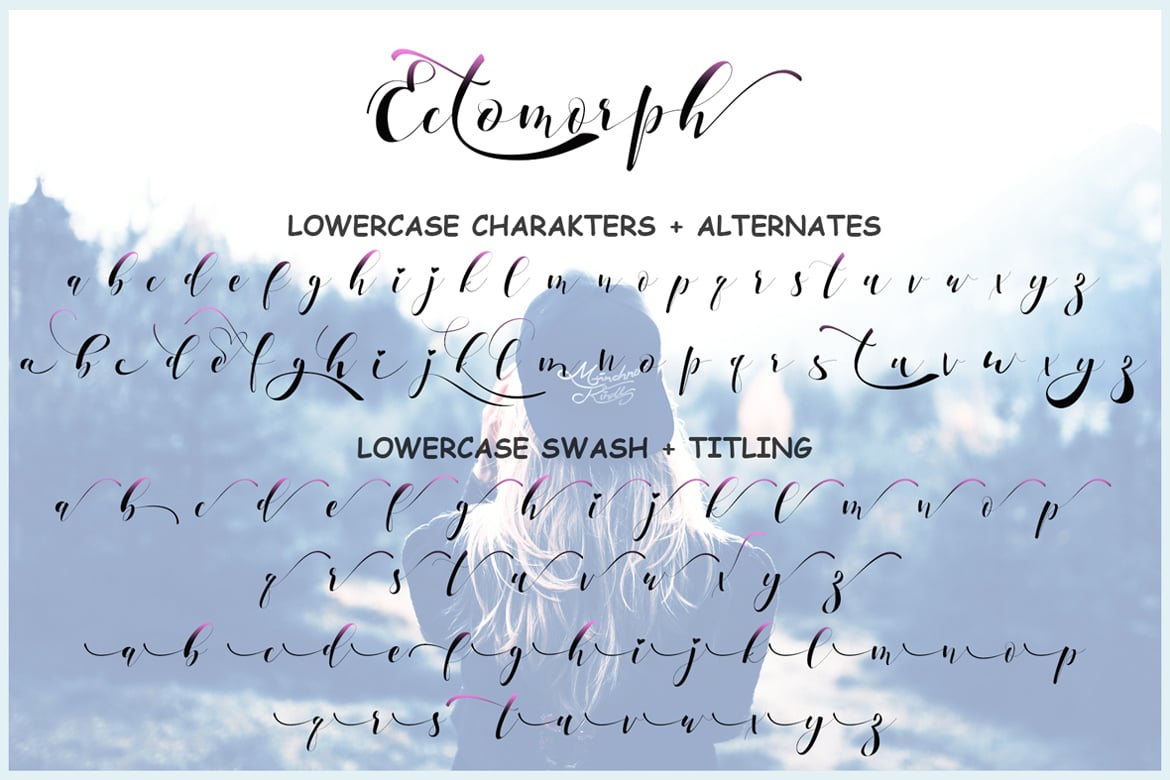 Ectomorph
LOWERCASE CHARAKTERS + ALTERNATES
a b c d e f g h i j k l m n o p q r s t u v w x y z
a b c d e f g h i j k l m n o p q r s t u v w x y z
Münchner
Kindl
LOWERCASE SWASH + TITLING
a b c d e f g h i j k l m n o p
q r s t u v w x y z
a b c d e f g h i j k l m n o p
q r s t u v w x y z